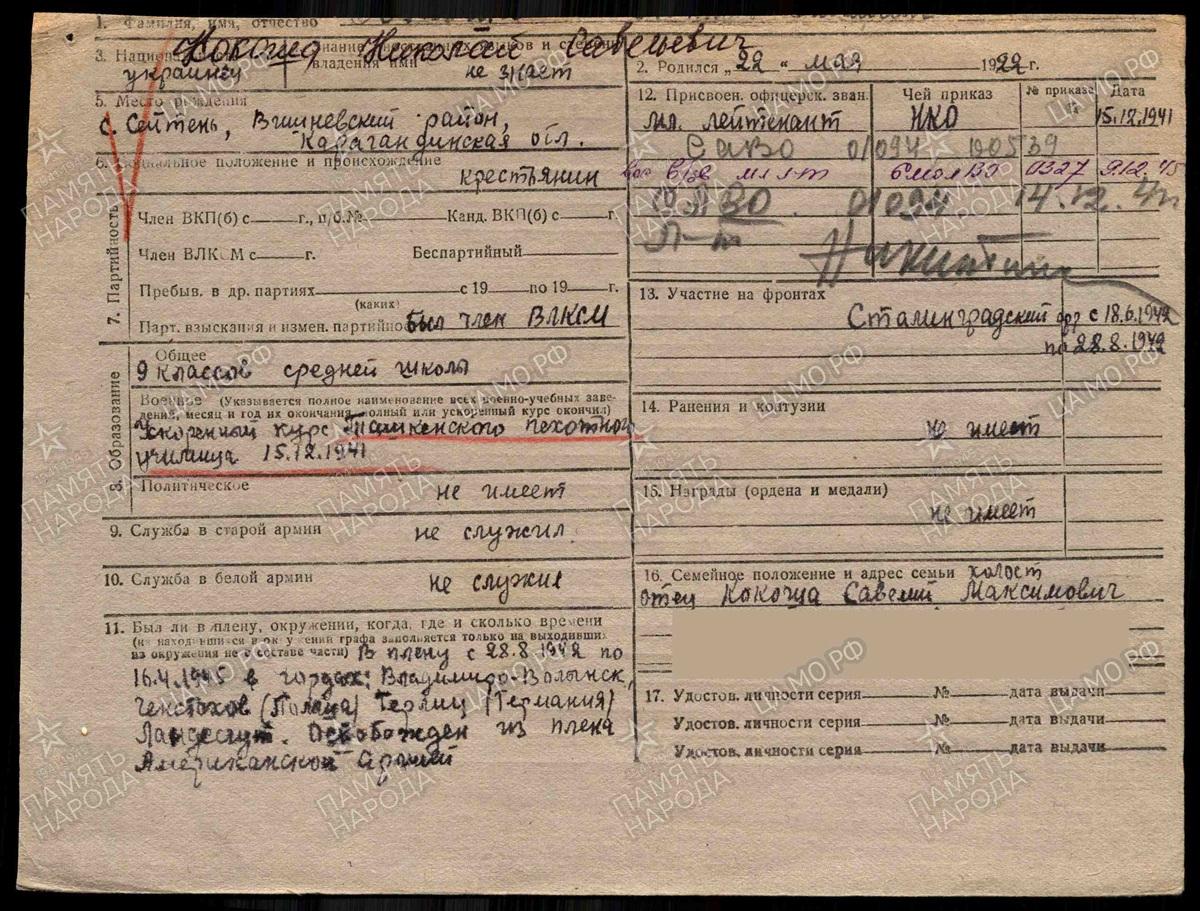 1. Фамилия, имя, отчество
Кокоша Николай Савельевич
3. Национальность
украинец
владения ими
не знает
2. Родился „22“ мая 1922 г.
5. Место рождения
с. Сейтень, Вишневский район,
Карагандинская обл.
6. Социальное положение и происхождение
крестьянин
7. Партийность
Член ВКП(б) с г., п/б.№ Канд. ВКП(б) с г.
Член ВЛКСМ с г. Беспартийный
Пребыв. в др. партиях с 19 по 19 г.
(каких)
Парт. взыскания и измен. партийно
был член ВЛКСМ
8. Образование
Общее
9 классов средней школы
Военное (Указывается полное наименование всех военно-учебных заве-
дений, месяц и год их окончания, полный или ускоренный курс окончил)
Ускоренный курс Ташкенского пехотного
училища 15.12.1941
Политическое не имеет
9. Служба в старой армии не служил
10. Служба в белой армии не служил
11. Был ли в плену, окружении, когда, где и сколько времени
(на находившихся в окружении графа заполняется только на выходивших
из окружения не в составе части) В плену с 28.8.1942 по
16.4.1945 в городах: Владимиро-Волынск,
Ченстохов (Польша) Герлиц (Германия)
Ландесгут. Освобожден из плена
Американской Армией
12. Присвоен. офицерск. зван. Чей приказ № приказа Дата
мл. лейтенант НКО 15.12.1941
САВО 01094
0327 9.12.45
01094 14.12.41
Л-т
13. Участие на фронтах
Сталинградский фр с 18.6.1942
по 28.8.1942
14. Ранения и контузии
не имеет
15. Награды (ордена и медали)
не имеет
16. Семейное положение и адрес семьи холост
отец Кокоша Савелий Максимович
17. Удостов. личности серия № дата выдачи
Удостов. личности серия № дата выдачи
Удостов. личности серия № дата выдачи
ПАМЯТЬ НАРОДА
ЦАМО.РФ